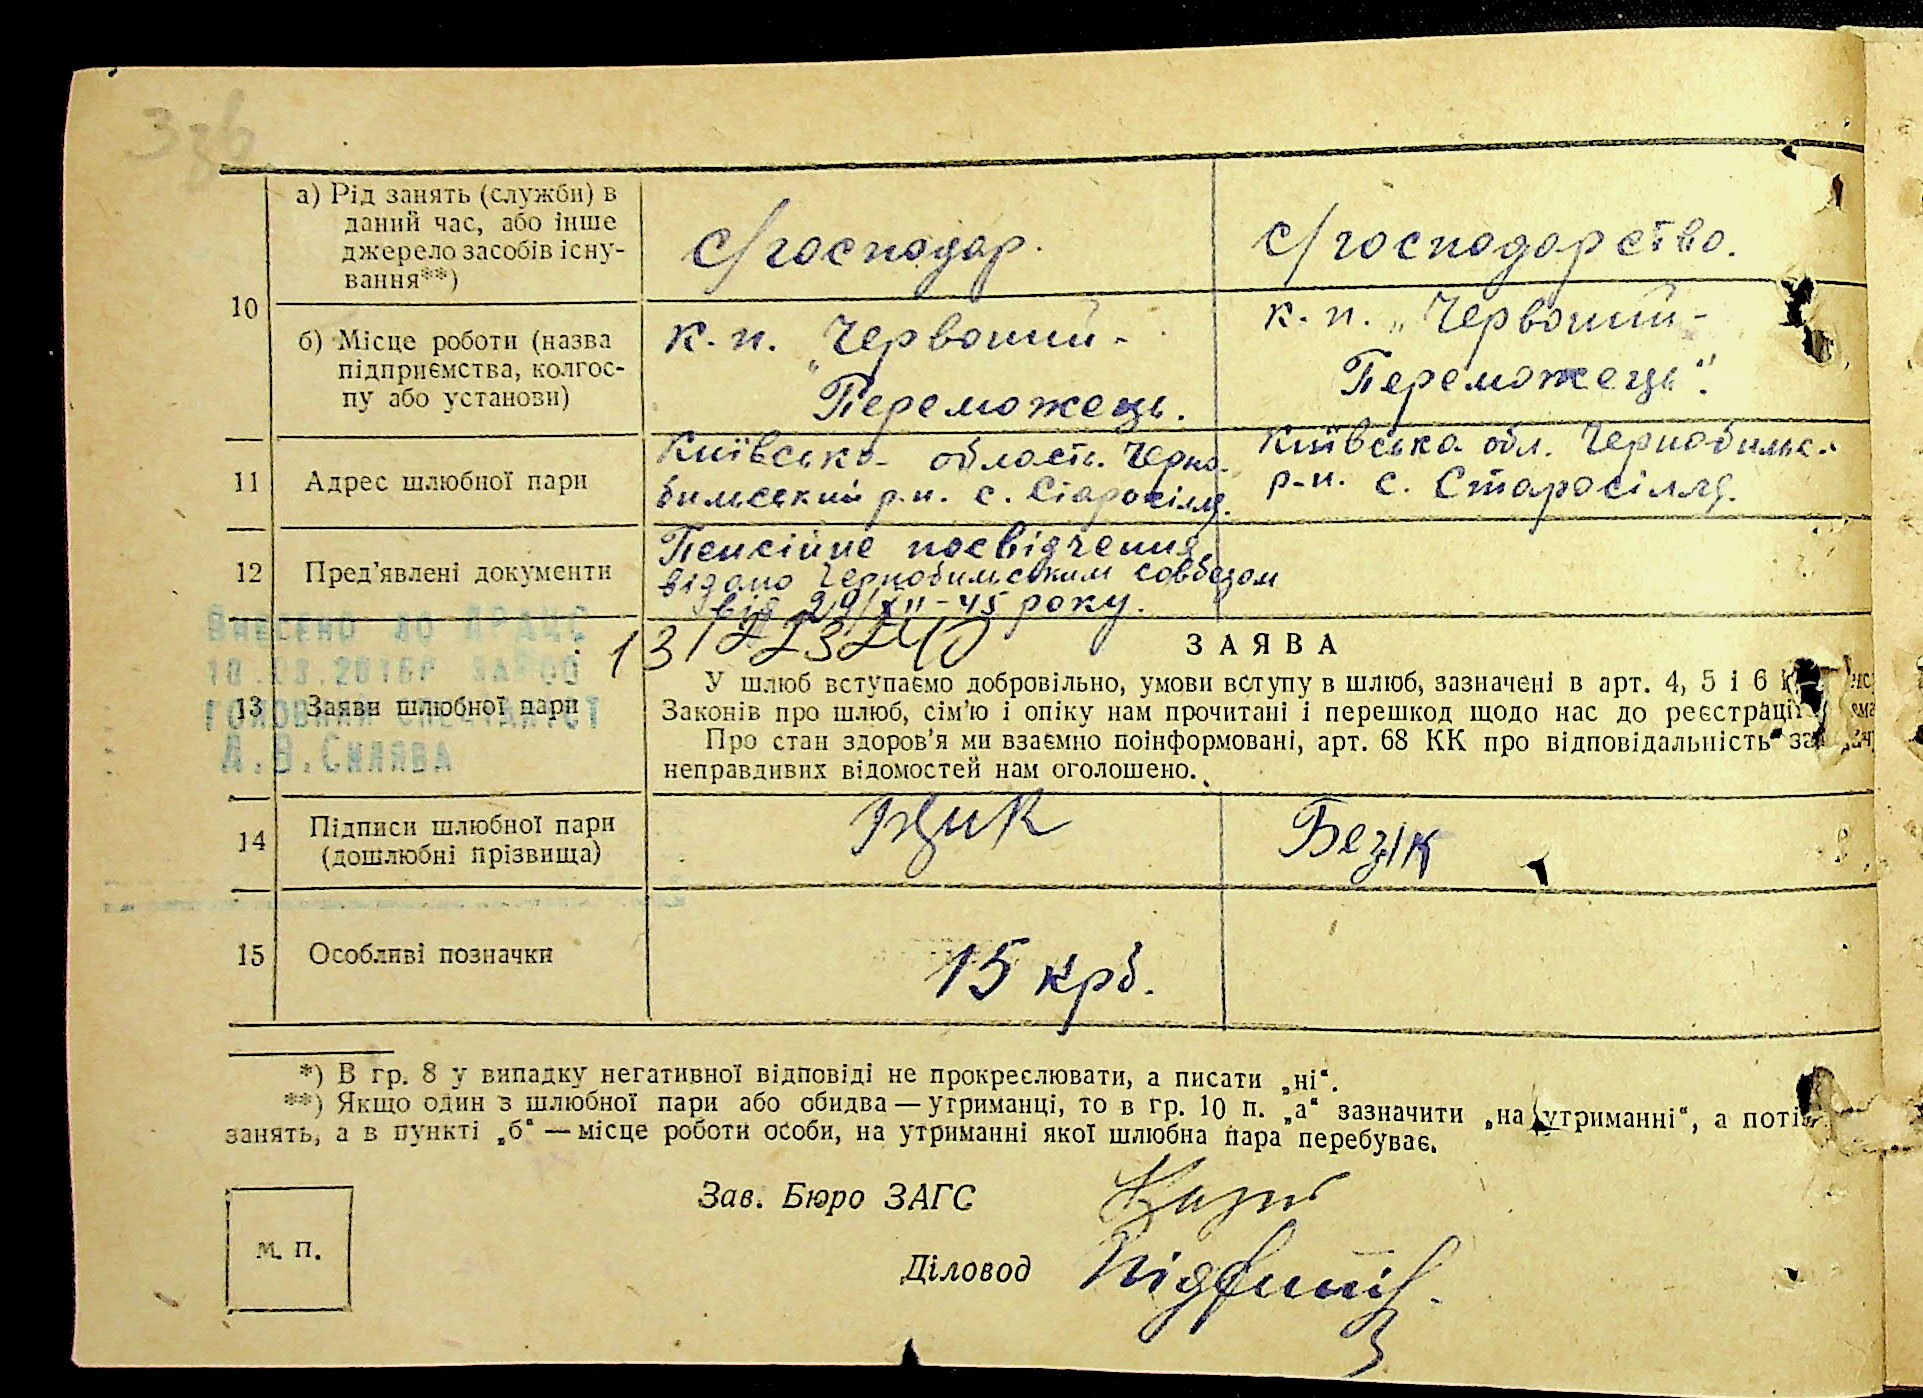 а) Рід занять (служби) в
даний час, або інше
джерело засобів існу-
вання**)
с/господар.
с/господарство.
10
б) Місце роботи (назва
підприємства, колгос-
пу або установи)
к. п. „Червоний-
Переможець.
к. п. „Червоний-
Переможець".
11
Адрес шлюбної пари
Київська область. Чорно-
бильський р-н. с. Старосілля.
Київська обл. Чернобильс.
р-н. с. Старосілля.
12
Пред'явлені документи
Пенсійне посвідчення
видано Чернобильським совбезом
від 29/XII-45 року.
131223240
Внесено до ДРАЦС
13
Заяви шлюбної пари
ЗАЯВА
У шлюб вступаємо добровільно, умови вступу в шлюб, зазначені в арт. 4, 5 і 6
Законів про шлюб, сім'ю і опіку нам прочитані і перешкод щодо нас до реєстрації
Про стан здоров'я ми взаємно поінформовані, арт. 68 КК про відповідальність за
неправдивих відомостей нам оголошено.
ГОЛОВНИЙ СПЕЦІАЛІСТ
14
Підписи шлюбної пари
(дошлюбні прізвища)
Безік
15
Особливі позначки
15 крб.
*) В гр. 8 у випадку негативної відповіді не прокреслювати, а писати „ні".
**) Якщо один з шлюбної пари або обидва — утриманці, то в гр. 10 п. „а" зазначити „на утриманні", а потім
занять, а в пункті „б" — місце роботи особи, на утриманні якої шлюбна пара перебуває.
Зав. Бюро ЗАГС
Діловод
М. П.